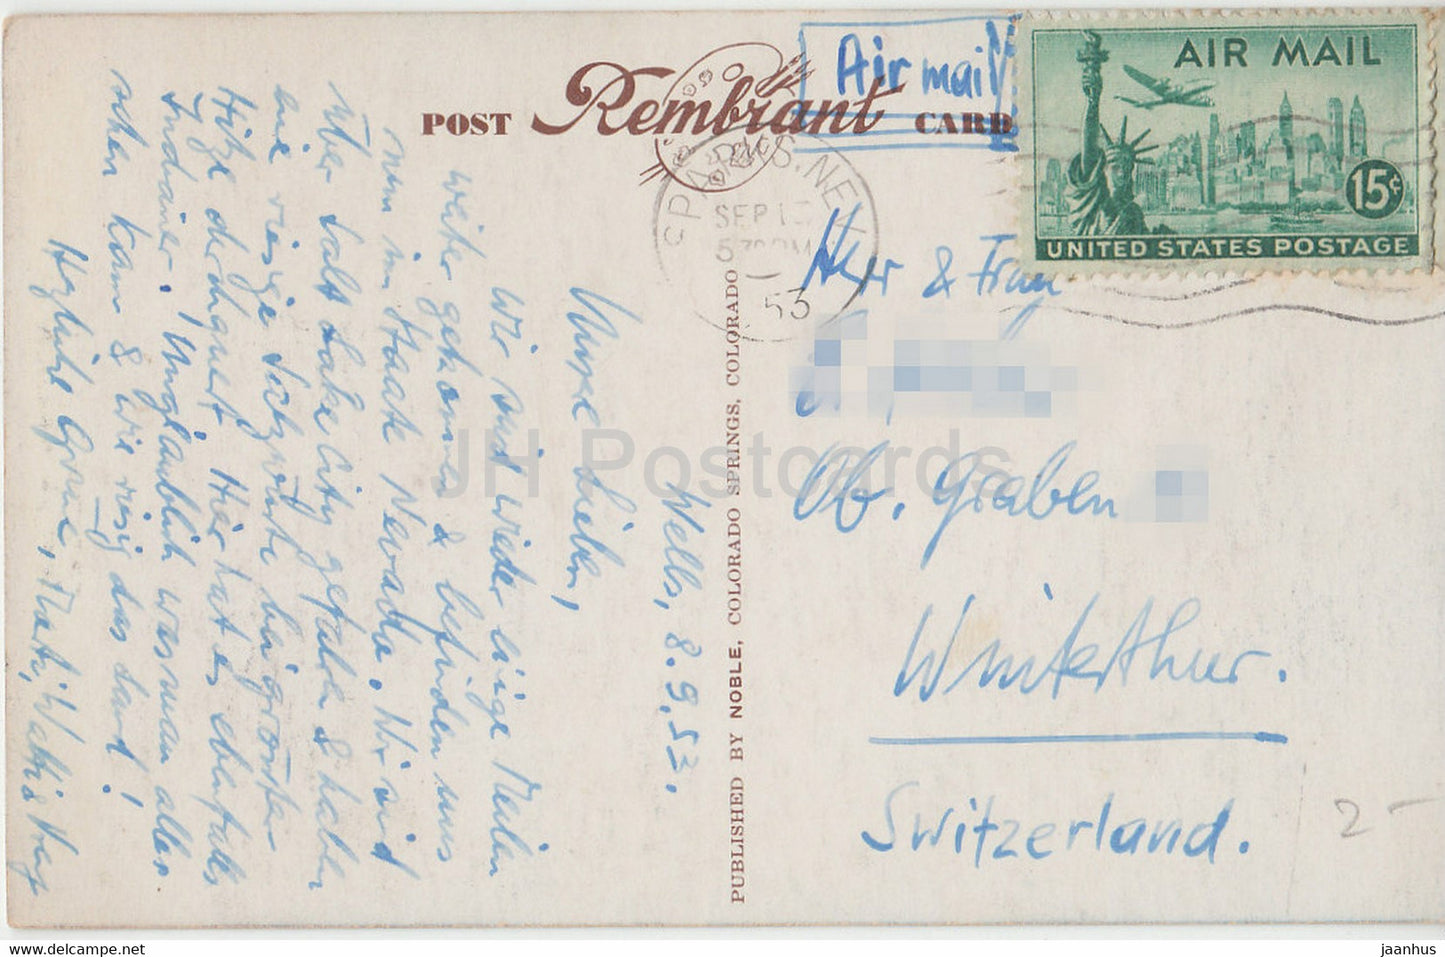 POST Rembrant CARD
Air mail
AIR MAIL
15¢
UNITED STATES POSTAGE
SPARKS. NEV
SEP 13
53
Wells, 8.9.53.
Unsre Lieben,
Wir sind wieder einige Meilen
weiter gekommen & befinden uns
nun im Staate Nevada. Wir sind
über Salt Lake City gefahren &
eine riesige Salzwüste bei grösster
Hitze durchquert. Hier hat es ebenfalls
Indianer. Unglaublich was man alles
sehen kann & wie riesig das Land!
Herzliche Grüsse,
PUBLISHED BY NOBLE, COLORADO SPRINGS, COLORADO
Herr & Frau
Ob. Graben
Winterthur.
Switzerland.
2-
JH Postcards
www.hippostcard.com
jaanhus